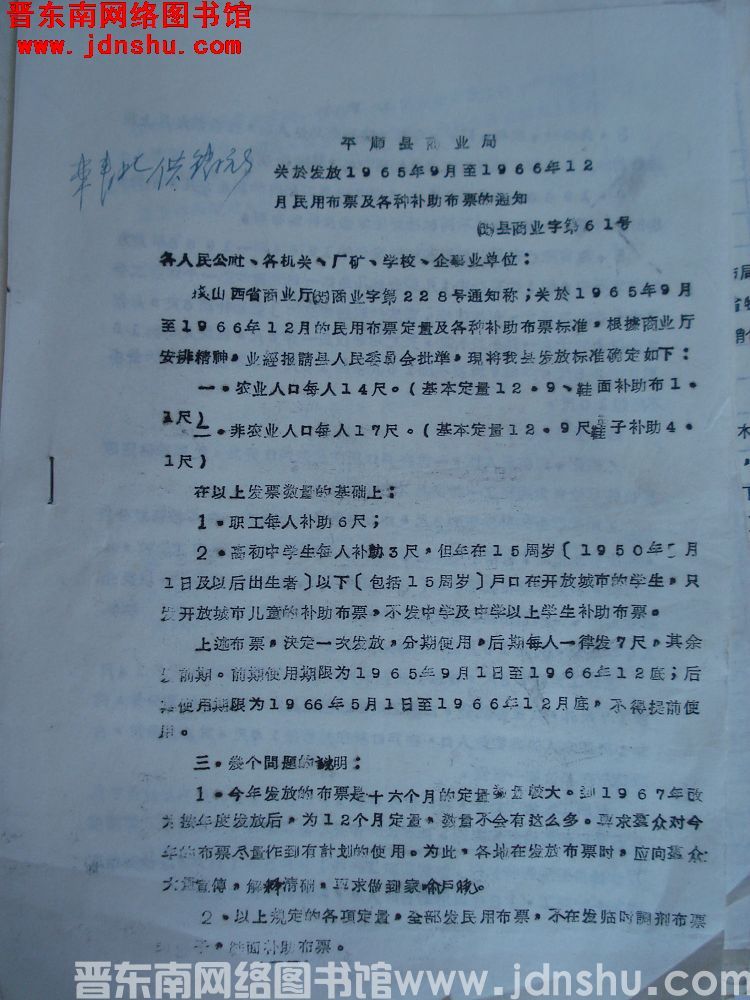 晋东南网络图书馆
www.jdnshu.com
平顺县商业局
关於发放1965年9月至1966年12
月民用布票及各种补助布票的通知
县商业字第61号
各人民公社、各机关、厂矿、学校、企事业单位：
山西省商业厅商业字第228号通知称；关於1965年9月
至1966年12月的民用布票定量及各种补助布票标准，根据商业厅
安排精神，业經报請县人民委员会批準，现将我县发放标准确定如下：
一・农业人口每人14尺。(基本定量12・9、鞋面补助布1・
1尺)
二・非农业人口每人17尺。(基本定量12・9尺鞋子补助4・
1尺)
在以上发票数量的基础上：
1・职工每人补助6尺；
2・高初中学生每人补助3尺，但年在15周岁〔1950年 月
1日及以后出生者〕以下〔包括15周岁〕戶口在开放城市的学生，只
发开放城市儿童的补助布票，不发中学及中学以上学生补助布票。
上述布票，决定一次发放，分期使用，后期每人一律发7尺，其余
发前期。前期使用期限为1965年9月1日至1966年12底；后
期使用期限为1966年5月1日至1966年12月底，不得提前使
用。
三・几个問題的说明：
1・今年发放的布票是十六个月的定量数量较大。到1967年改
为按年度发放后，为12个月定量，数量不会有这么多。要求羣众对今
年的布票尽量作到有計划的使用。为此，各地在发放布票时，应向羣众
大量宣传，解释清础，要求做到家俞戶晓。
2・以上规定的各項定量，全部发民用布票，不在发临时調剂布票
子，鞋面补助布票。
晋东南网络图书馆www.jdnshu.com